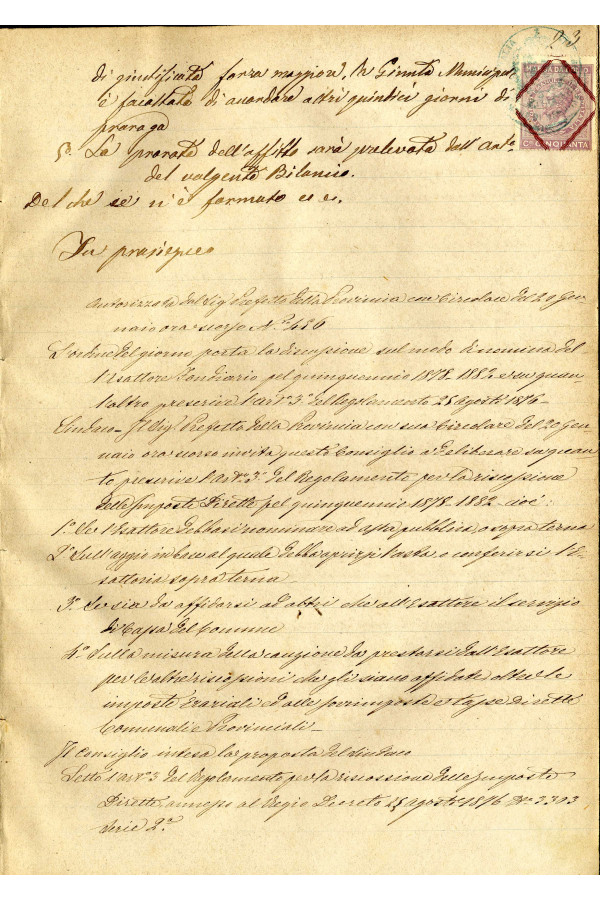 93
di giustificata forza maggiore, la Giunta Municipale
è facoltata di accordare altri quindici giorni di
proroga
5. La prorata dell'affitto sarà prelevata dall'art.
del volgente Bilancio.
Del che se n'è formato ec ec.
C. CINQUANTA
In prosieguo
Autorizzata dal Sig. Prefetto della Provincia con Circolare del 20 Gen-
naio ora scorso N. 486
L'ordine del giorno porta la discussione sul modo di nomina del-
l'Esattore Fondiario pel quinquennio 1878-1882 e su quan-
t'altro prescrive l'art. 3. del Regolamento 25 Agosto 1876-
Sindaco- Il Sig. Prefetto della Provincia con sua Circolare del 20 Gen-
naio ora scorso invita questo Consiglio a deliberare su quan-
to prescrive l'art. 3. del Regolamento per la riscossione
delle Imposte Dirette pel quinquennio 1878-1882 cioè:
1.° Se l'Esattore debbasi nominare ad asta pubblica, o sopra terna
2.° Sull'aggio in base al quale debba aprirsi l'asta o conferirsi l'E-
sattoria sopra terna-
3.° Se sia da affidarsi ad altri che all'Esattore il servizio
di Cassa del Comune
4.° Sulla misura della cauzione da prestarsi dall'Esattore
per le altre riscossioni che gli siano affidate oltre le
imposte erariali ed alle sovrimposte e tasse dirette
Comunali e Provinciali-
Il Consiglio intesa la proposta del Sindaco
Letto l'art. 3 del Regolamento per la riscossione delle Imposte
Dirette annesso al Regio Decreto 25 Agosto 1876 N. 3303
Serie 2.a